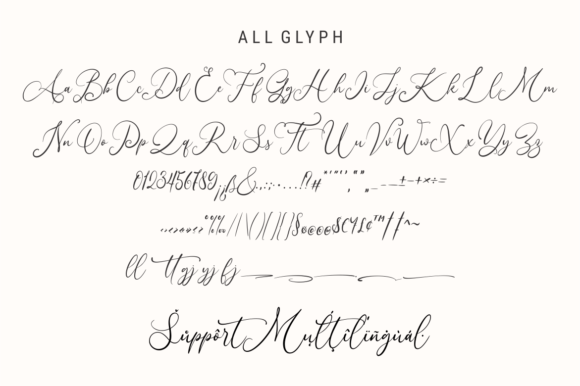 ALL GLYPH
Aa Bb Cc Dd Ee Ff Gg Hh Ii Jj Kk Ll Mm
Nn Oo Pp Qq Rr Ss Tt Uu Vv Ww Xx Yy Zz
0123456789¡¿ß&.,:;·…!?#
ll tt gj yj fj
Śüppôrt Mụltĺïlïñġùál.